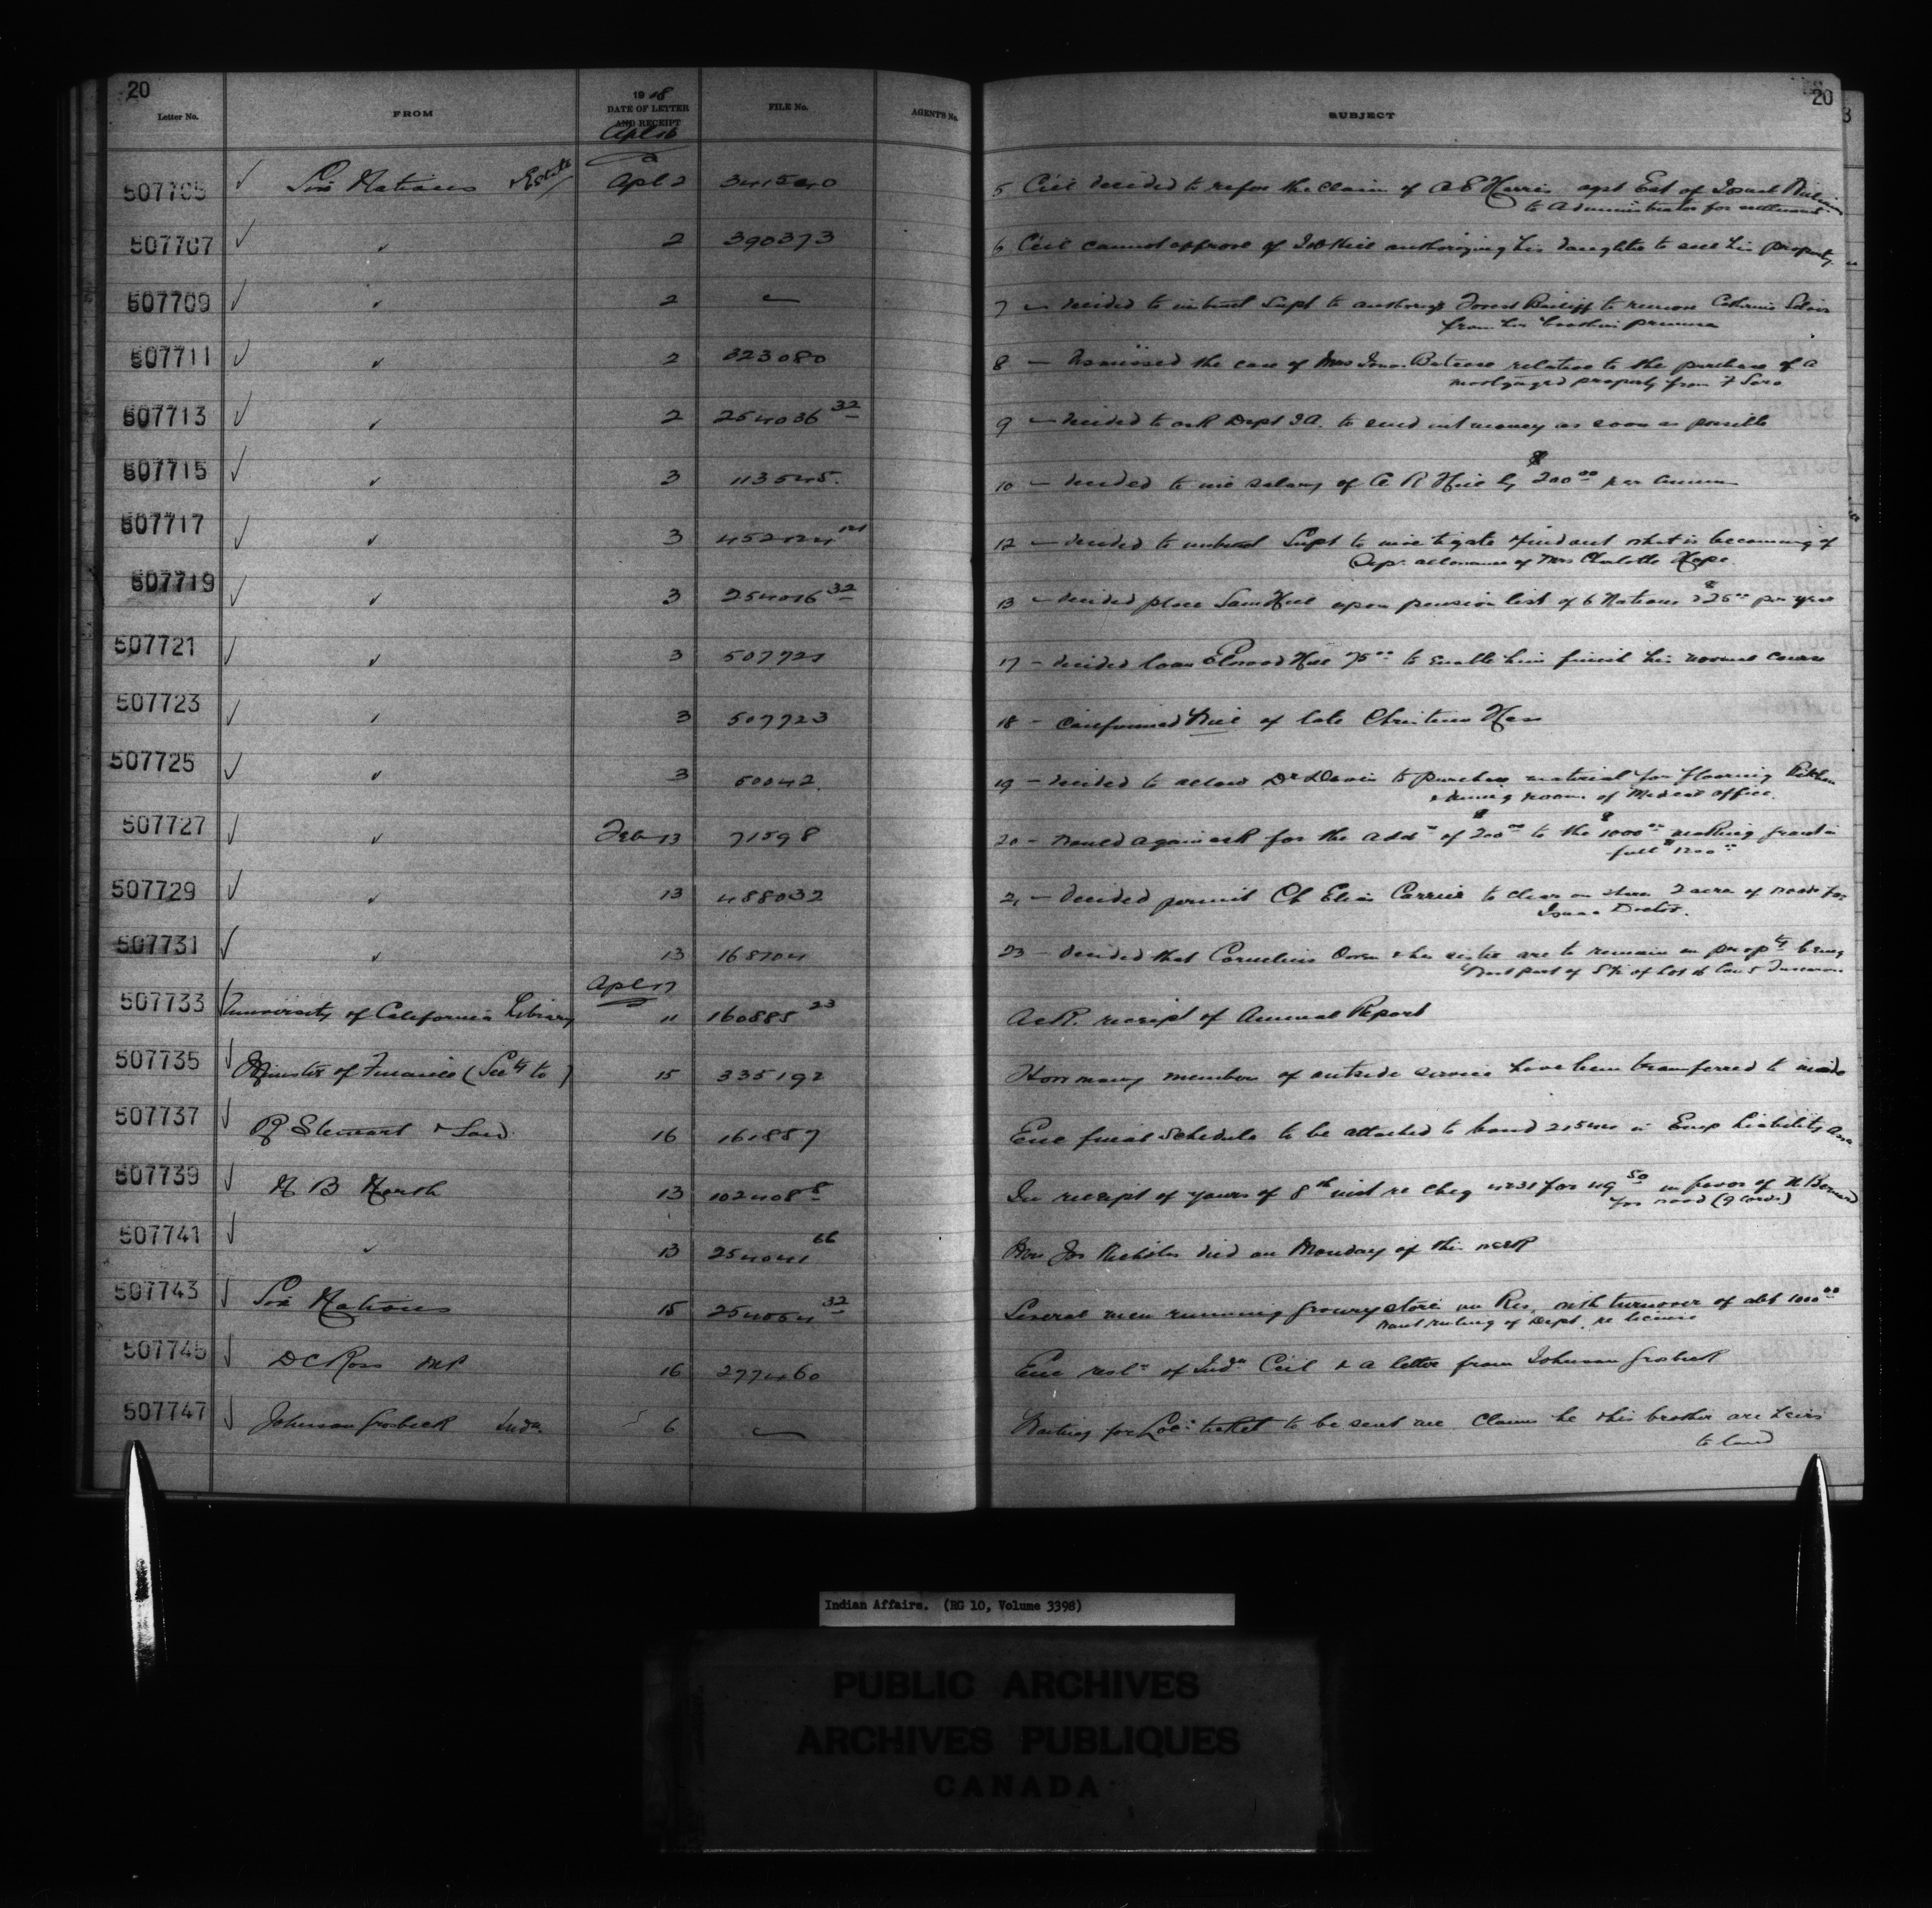 20
Letter No. FROM 1918 DATE OF LETTER AND RECEIPT FILE No. AGENTS No. SUBJECT 20
Apl 16
507705 Six Nations Estate Apl 2 341540 5 Ccil decided to refer the claim of A E Harris agst Est of
to Administrator for settlement
507707 2 390373 6 Ccil cannot approve of Job Hill authorizing his daughter to sell his property
507709 2 7 — decided to instruct Supt to authorize Forest Bailiff to remove Catherine
from his brothers premises
507711 2 323080 8 — the case of Mrs relative to the purchase of a
mortgaged property from
507713 2 254036 32 9 — decided to ask Dept I.A. to send int money as soon as possible
507715 3 113545 10 — decided to salary of A R Hill by $200 00 per annum
507717 3 12 — decided to instruct Supt to investigate & find out what is becoming of
Sep. allowance of Mrs Charlotte
507719 3 32 13 — decided place Sam Hill upon pension list of 6 Nations $25 00 per year
507721 3 507721 17 — decided loan Elwood Hill 75 00 to enable him finish his normal course
507723 3 507723 18 — Confirmed Will of late Christina Hess
507725 3 50042 19 — decided to allow Dr Davis to purchase material for flooring Kitchen
& dining room of Medical office.
507727 Feb 13 71598 20 — would again ask for the addn of $200 00 to the $1000 00 making grant in
full $1200 00
507729 13 488032 21 — decided permit Ch Elias Carrier to clear on share 2 acre of
Isaac Doctor.
507731 13 23 — decided that Cornelius & her sister are to remain on propty being
part of S½ of Lot 16 Con 5 Tuscarora
Apl 17
507733 University of California Library 11 160885 23 Ack. receipt of Annual Report
507735 Minister of Finance (Secty to) 15 335192 How many members of outside service have been transferred to inside
507737 & Son 16 161857 Enc final Schedule to be attached to bond in Emp Liability
507739 13 102408 8 In receipt of yours of 8th inst re cheq for 49 50 in favor of
for wood (9 cords)
507741 13 66 Mrs Jos Nicholas died on Monday of this week
507743 Six Nations 15 32 Several men running grocery store on Res. with turnover of abt 1000 00
want ruling of Dept. re licenses
507745 D C Ross M.P 16 277460 Enc resln of Indn Ccil & a letter from Johnson Grosbeck
507747 Johnson Grosbeck Indn. 6 Waiting for Locn ticket to be sent me Claims he & his brother are heirs
to land
Indian Affairs. (RG 10, Volume 3398)
PUBLIC ARCHIVES
ARCHIVES PUBLIQUES
CANADA